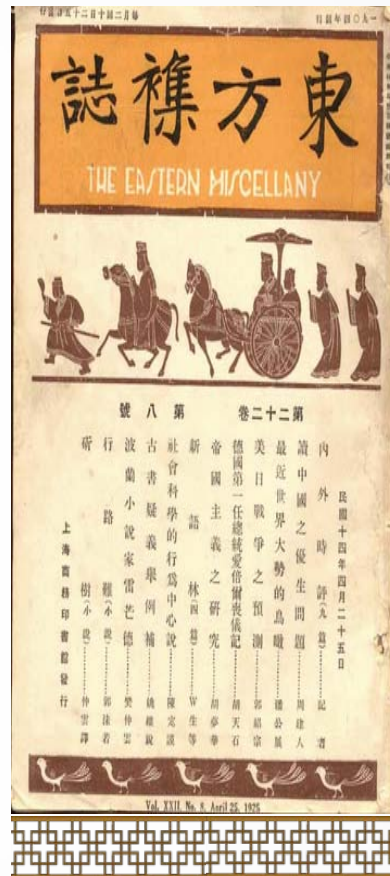 一九〇四年創刊
每月二回十日二十五日發行
東方雜誌
THE EASTERN MISCELLANY
第二十二卷 第八號
民國十四年四月二十五日
內外時評(九篇)………記者
讀中國之優生問題………周建人
最近世界大勢的鳥瞰………潘公展
美日戰爭之預測………郭紹宗
德國第一任總統愛倍爾喪儀記………胡天石
帝國主義之研究………胡夢華
新語林(四篇)………W生等
社會科學的行爲中心說………陳定謨
古書疑義舉例補………姚維銳
波蘭小說家雷芒德………樊仲雲
行路難(小說)………郭沫若
斫樹(小說)………仲雲譯
上海商務印書館發行
Vol. XXII, No. 8, April 25, 1925